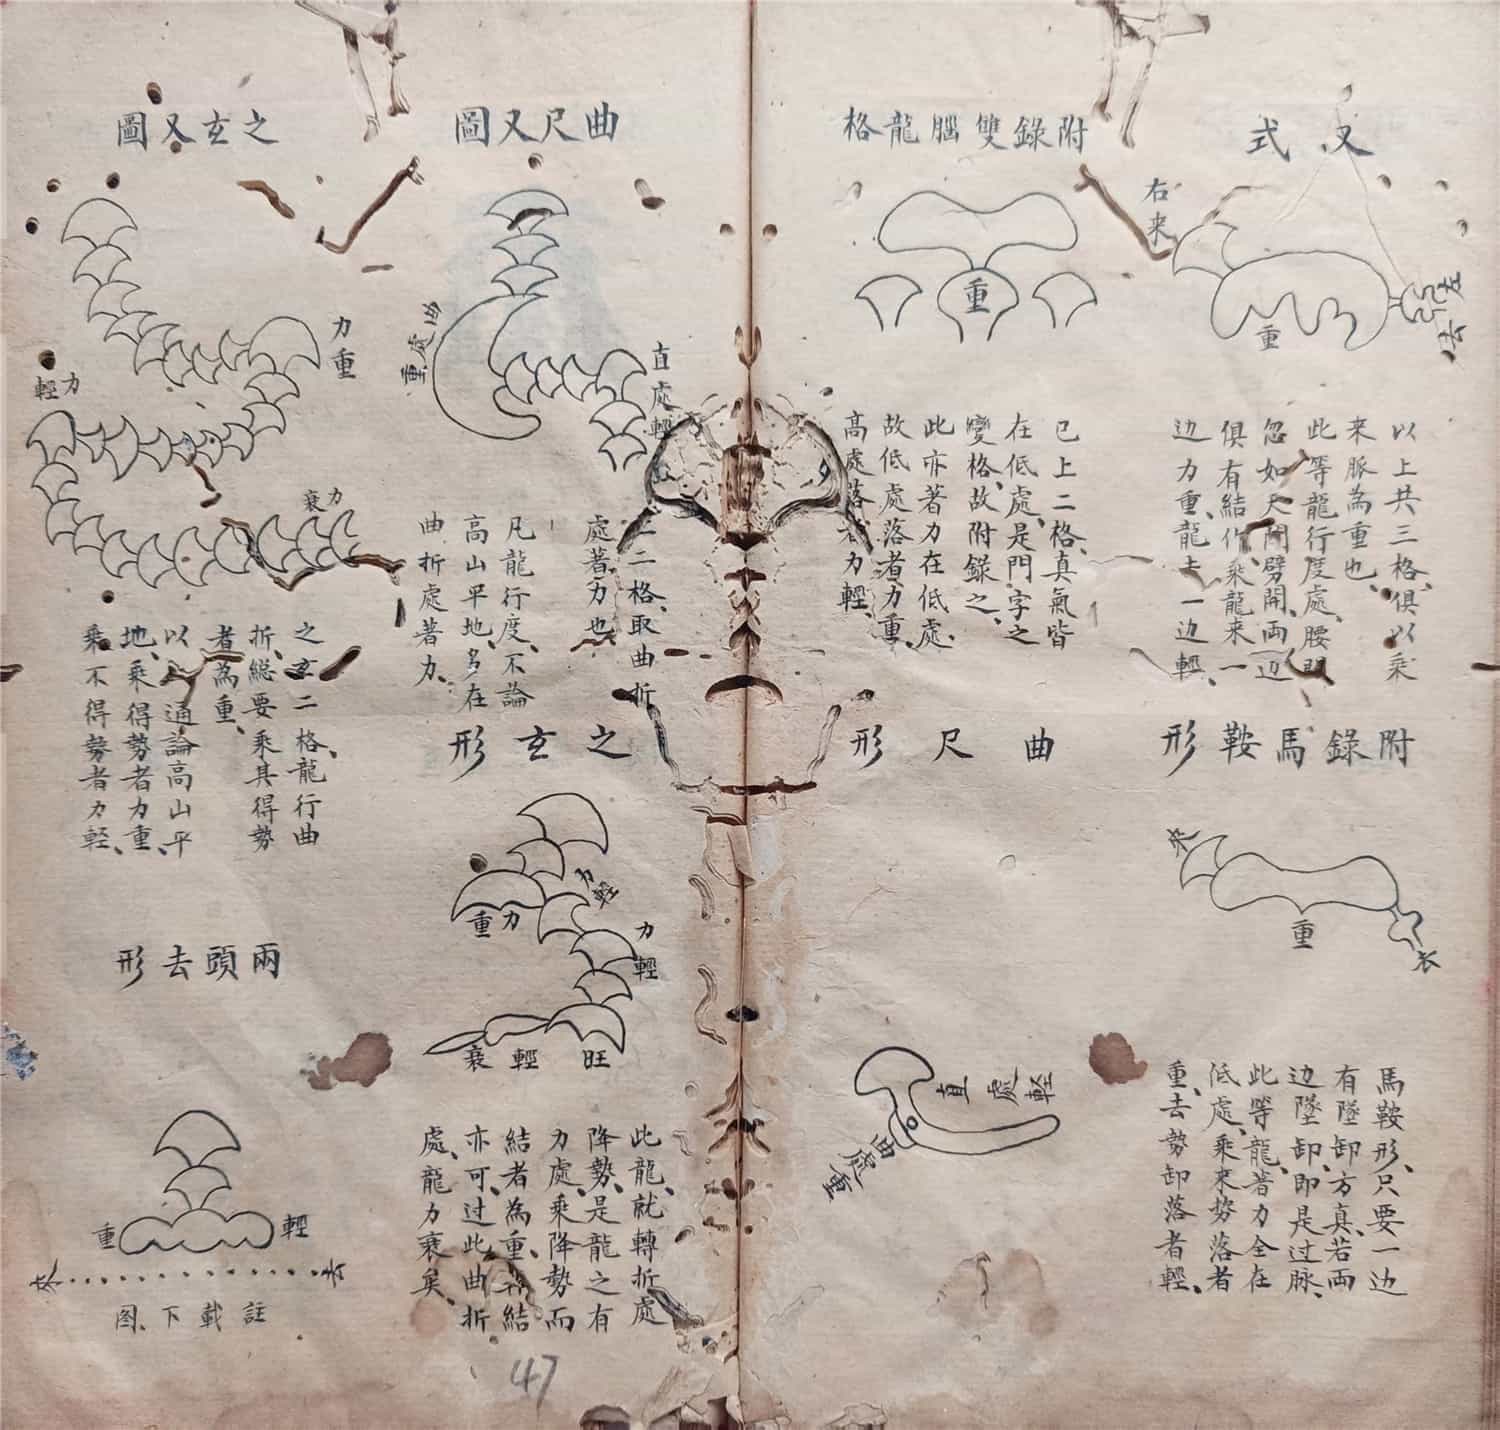 又式
右来
左去
重
以上共三格、俱以乘
来脈為重也、
此等龍行度處、腰間
忽如天開劈開、両边
俱有結作、乘龍来一
边力重、龍去一边輕、
附錄雙腦龍格
重
已上二格、真氣皆
在低處、是門字之
變格、故附錄之、
此亦著力在低處、
故低處落者力重、
高處落者力輕、
附錄馬鞍形
来
重
去
馬鞍形、只要一边
有墜卸方真、若両
边墜卸、即是过脉、
此等龍、著力全在
低處、乘来势落者
重、去勢卸落者輕、
曲尺形
直處輕
曲處重
曲尺又圖
曲處重
直處輕
上二格、取曲折
處著力也
凡龍行度、不論
高山平地、多在
曲折處著力、
之玄又圖
力重
力輕
力衰
之玄二格、龍行曲
折、総要乘其得勢
者為重、
以上通論高山平
地、乘得勢者力重、
乘不得勢者力輕、
之玄形
力輕
力重
力輕
旺
輕
衰
此龍、就轉折處
降勢、是龍之有
力處、乘降勢而
結者為重、
亦可、过此曲折
處、龍力衰矣、
兩頭去形
重
輕
来
去
註載下图、
47